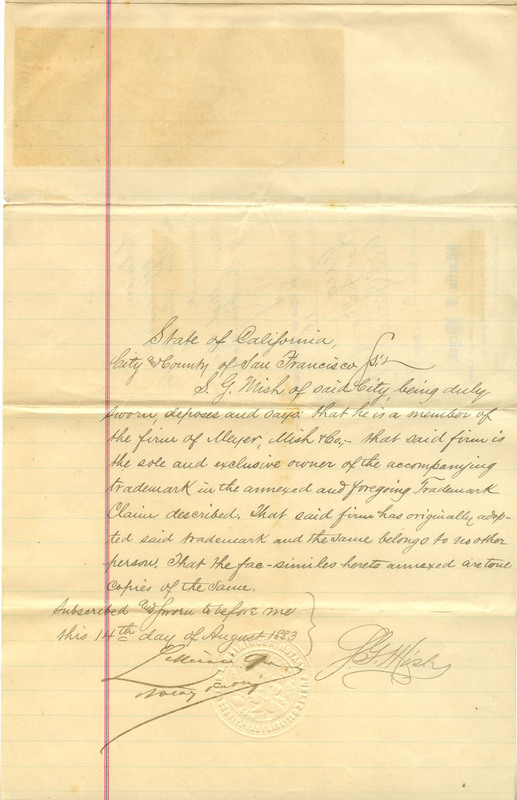 State of California,
City & County of San Francisco } S.S.
S. G. Mish of said City, being duly
sworn deposes and says: that he is a member of
the firm of Meyer, Mish & Co; - that said firm is
the sole and exclusive owner of the accompanying
trademark in the annexed and foregoing Trademark
Claim described. That said firm has originally adop-
ted said trademark and the same belongs to no other
person. That the fac-similes hereto annexed are true
copies of the same.
Subscribed and sworn to before me
this 14th day of August 1883
S. G. Mish
Notary Public